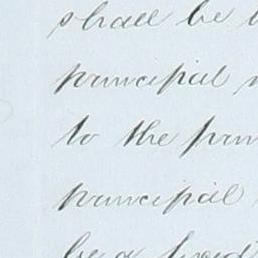 shall be
principal
to the prin
principal
be a